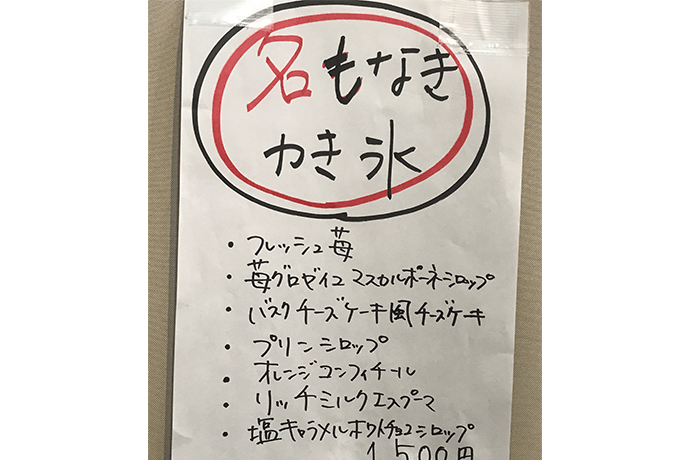 名もなき
かき氷
・フレッシュ苺
・苺グロゼイユ マスカルポーネシロップ
・バスクチーズケーキ風チーズケーキ
・プリンシロップ
・オレンジコンフィチール
・リッチミルクエスプーマ
・塩キャラメルホワイトチョコシロップ
1,500円